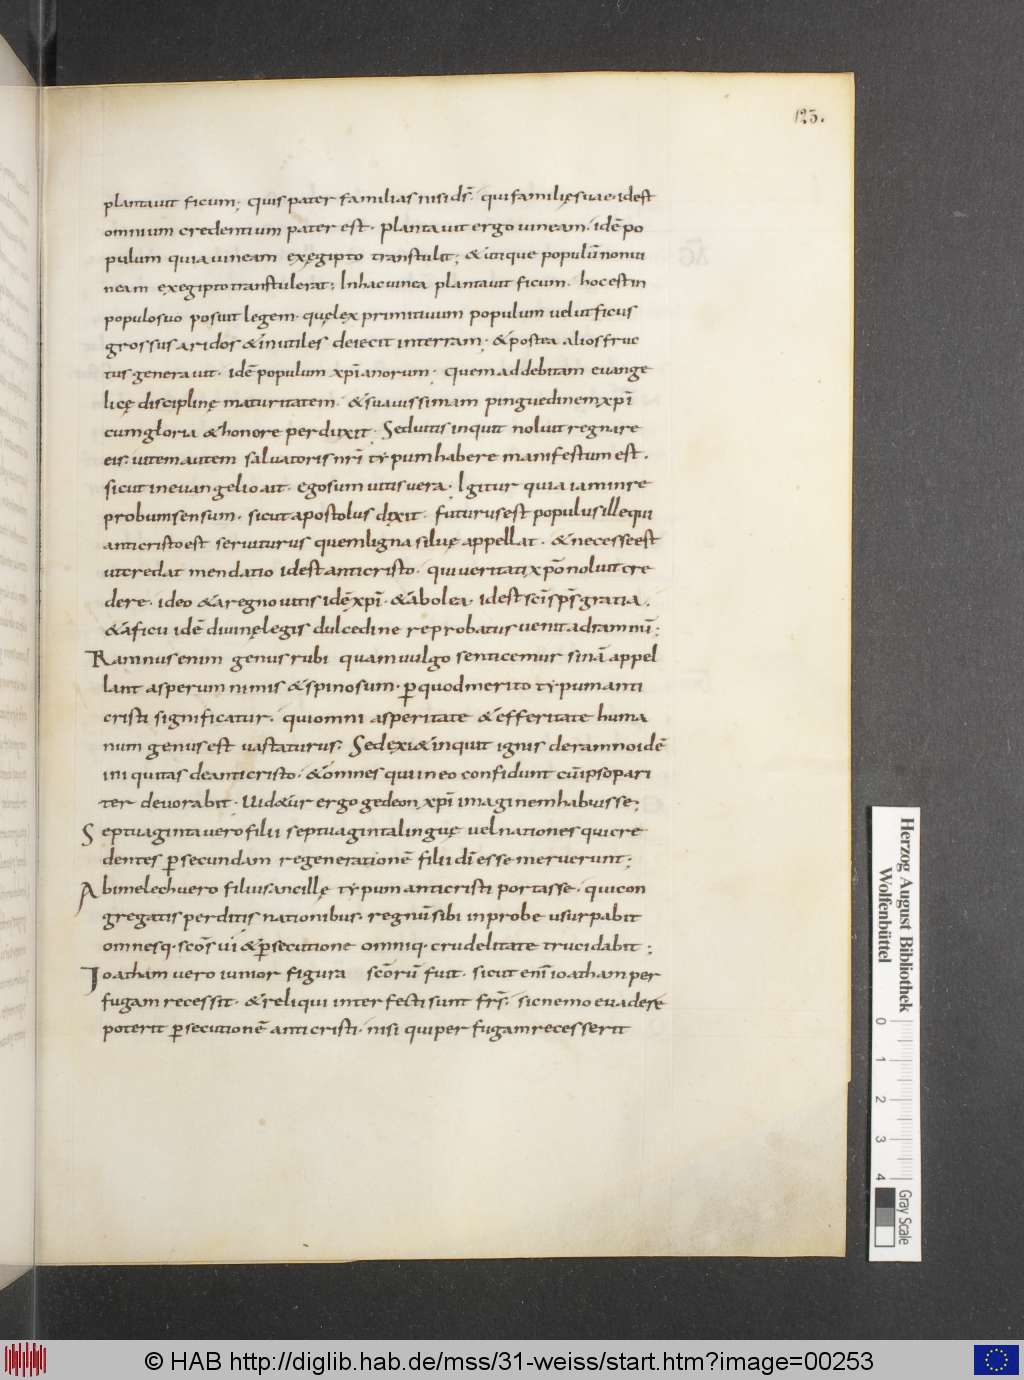 125.
plantauit ficum; quis pater familias nisi d̅s̅. qui familię suae. idest
omnium credentium pater est. plantauit ergo uineam. idē po
pulum quia uineam exęgipto transtulit; & utique populū non ui
neam exegipto transtulerat; In hac uinea plantauit ficum. hoc est in
populo suo posuit legem. quę lex primitiuum populum uelut ficus
grossus aridos & inutiles deiecit in terram. & postea alios fruc
tus generauit. idē populum xp̅ianorum. quem ad debitam euange
licę disciplinę maturitatem. & suauissimam pinguedinem xp̅i
cum gloria & honore perduxit. Sed uitis inquit noluit regnare
eis. uitem autem saluatoris nr̅i typum habere manifestum est.
sicut in euangelio ait. ego sum uitis uera. Igitur quia iam in re
probum sensum. sicut apostolus dixit. futurus est populus ille qui
anticristo est seruiturus quem ligna siluę appellat. & necesse est
ut credat mendatio id est anticristo. qui ueritati xp̅o noluit cre
dere. ideo & a regno uitis idē xp̅i. & ab olea. id est sc̅i sp̅s gratia.
& a ficu idē diuinę legis dulcedine reprobatus uenit ad ramnū;
Ramnus enim genus rubi quam uulgo senticem ur sinā appel
lant asperum nimis & spinosum. ꝑ quod merito typum anti
cristi significatur. qui omni asperitate & efferitate huma
num genus est uastaturus. Sed exi& inquit ignis de ramno idē
iniquitas de anticristo. & omnes qui in eo confidunt cū ipso pari
ter deuorabit. Uid&ur ergo gedeon xp̅i imaginem habuisse;
Septuaginta uero filii septuaginta linguę uel nationes qui cre
dentes ꝑ secundam regenerationē filii di̅ esse meruerunt;
Abimelech uero filius ancillę typum anticristi portasse. qui con
gregatis perditis nationibus. regnū sibi inprobe usurpabit
omnesq. sc̅os ui & ꝑsecutione omniq. crudelitate trucidabit;
Ioatham uero iunior figura sc̅orū fuit. sicut eni̅ ioatham per
fugam recessit. & reliqui interfecti sunt fr̅s. sic nemo euadere
poterit ꝑsecutionē anticristi. nisi qui per fugam recesserit
Herzog August Bibliothek
Wolfenbüttel
0 1 2 3 4
Gray Scale
© HAB http://diglib.hab.de/mss/31-weiss/start.htm?image=00253